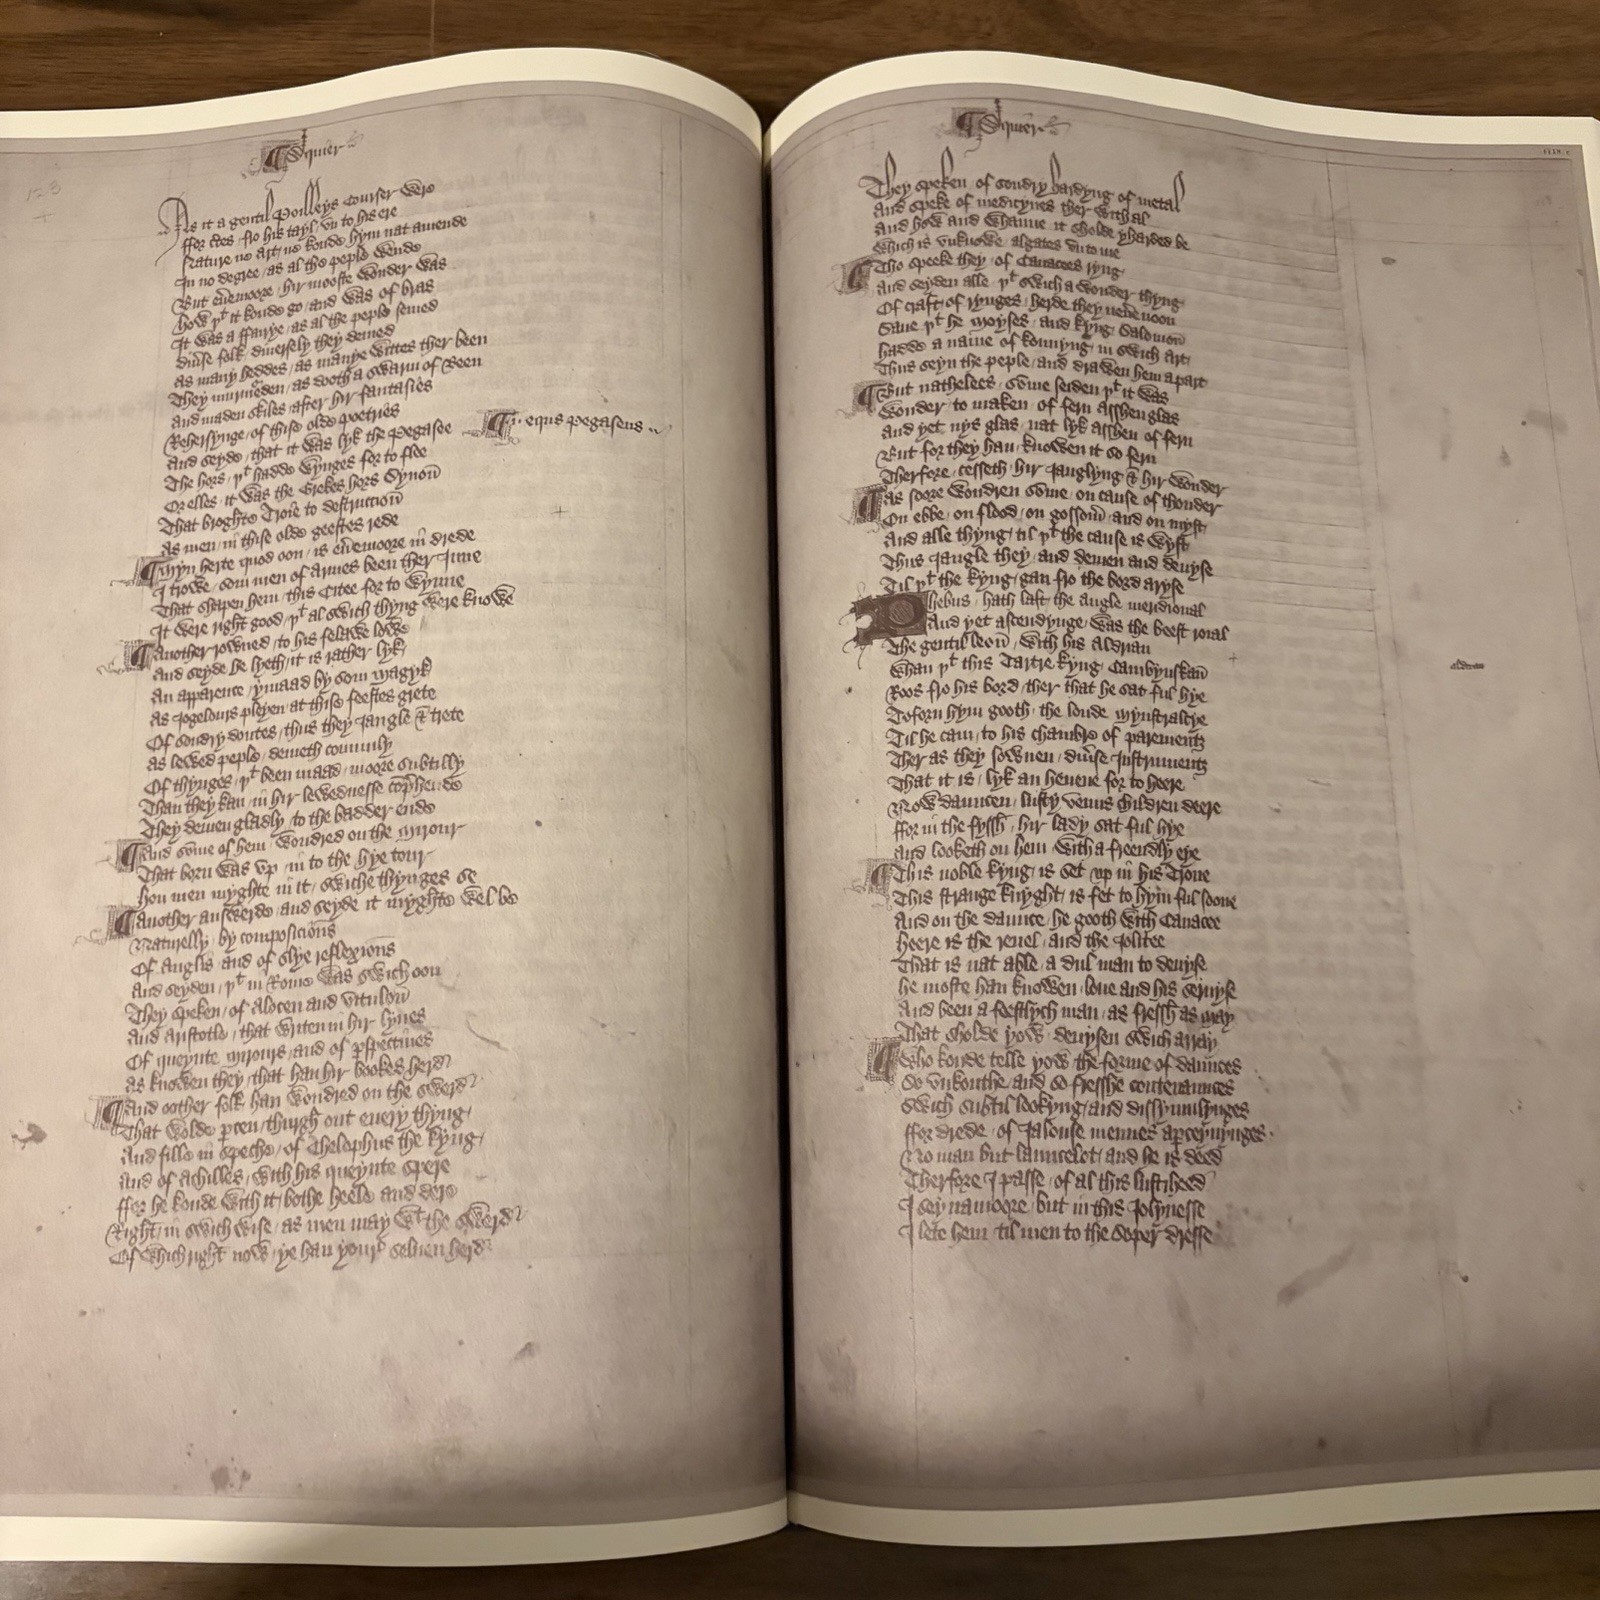 ¶ Squier
As it a gentil Poilleys Courser were
ffor certes fro his tayl vn to his ere
Nature ne Art ne koude hym nat amende
In no degree as al the peple wende
But eůemoore hir mooste wonder was
How þᵗ it koude go and was of bras
It was a ffairye as al the peple semed
Diůse folk diuersely they demed
As many heddes as manye wittes ther been
They murmureden as dooth a swarm of Been
And maden skiles after hir fantasies
Rehersynge of thise olde poetries
And seyde that it was lyk the Pegasee
¶ .i. equs Pegaseus
The hors þᵗ hadde wynges for to flee
Or elles it was the Grekes hors Synon̄
That broghte Troie to destruccion̄
As men in thise olde geestes rede
¶ Myn herte quod oon is eůemoore in drede
I trowe som men of Armes been ther Inne
That shapen hem this Citee for to wynne
It were right good þᵗ al swich thyng were knowe
¶ Another rowned to his felawe lowe
And seyde he lyeth it is rather lyk
An apparence ymaad by som magyk
As Iogelours pleyen at thise feestes grete
Of sondry doutes thus they Iangle & trete
As lewed peple demeth comunly
Of thynges þᵗ been maad moore subtilly
Than they kan in hir lewednesse comp̄hende
They demen gladly to the badder ende
¶ And som̄e of hem wondred on the Mirour
That born was vp in to the hye tour
Hou men myghte in it swiche thynges se
¶ Another answerde and seyde it myghte wel be
Naturelly by composicion̄s
Of Anglis and of slye reflexion̄s
And seyden þᵗ in Rome was swich oon
They speken of Alocen and Vitulon̄
And Aristotle that writen in hir lynes
Of queynte Mirours and of ꝑspectiues
As knowen they that han hir bookes herd
¶ And oother folk han wondred on the swerd
That wolde ꝑcen thurgh out euery thyng
And fille in speche of Thelophus the kyng
And of Achilles with his queynte spere
ffor he koude with it bothe heele and dere
Right in swich wise as men may wᵗ the swerd
Of which right now ye han your seluen herd
¶ Squier
They speken of sondry hardyng of metal
And speke of medicynes ther with al
And how and whanne it sholde yharded be
Which is vnknowe algates vn to me
¶ Tho speeke they of Canacees ryng
And seyden alle þᵗ swich a wonder thyng
Of craft of rynges herde they neuere noon
Saue þᵗ he Moyses and kyng Salomon̄
Hadde a name of konnyng in swich Art
Thus seyn the peple and drawen hem apart
¶ But nathelees som̄e seiden þᵗ it was
Wonder to maken of fern Asshen glas
And yet nys glas nat lyk asshen of fern
But for they han knowen it so fern
Therfore cesseth hir Ianglyng & hir wonder
¶ As soore wondren som̄e on cause of thonder
On ebbe on flood on gossom̄ and on myst
And alle thyng til þᵗ the cause is wyst
Thus Iangle they and demen and deuyse
Til þᵗ the kyng gan fro the bord aryse
Phebus hath laft the Angle meridional
And yet ascendynge was the beest roial
The gentil leon̄ with his Aldrian
Whan þᵗ this Tartre kyng Cambyuskan̄
Roos fro his bord ther that he sat ful hye
Toforn hym gooth the loude Mynstralcye
Til he cam to his chambre of parementz
Ther as they sownen diůse Instrumentz
That it is lyk an heuene for to heere
Now dauncen lusty Venus children deere
ffor in the fyssh hir lady sat ful hye
And looketh on hem with a freendly eye
¶ This noble kyng is set vp in his Trone
This strange knyght is fet to hym ful soone
And on the daunce he gooth with Canacee
Heere is the reuel and the Iolitee
That is nat able a dul man to deuyse
He moste han knowen loue and his seruyse
And been a feestlych man as fressh as May
That sholde yow deuysen swich array
¶ Who koude telle yow the forme of daunces
So vnkouthe and so fresshe contenances
Swich subtil lookyng and dissymulynges
ffor drede of Ialouse mennes aꝑceyuynges
No man but launcelot and he is deed
Therfore I passe of al this lustiheed
I sey namoore but in this Iolynesse
I lete hem til men to the soper dresse